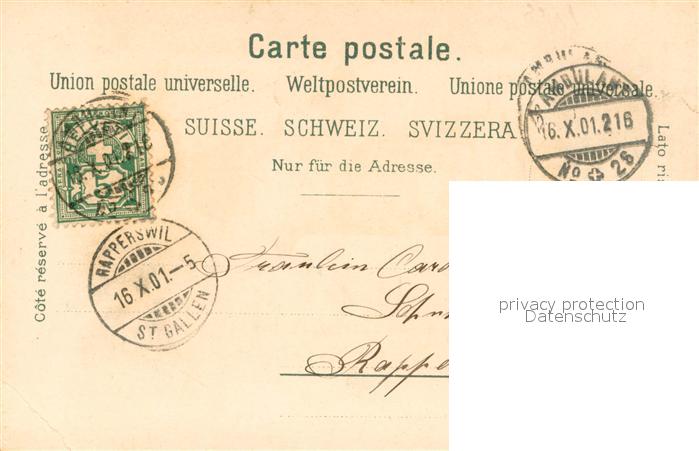 Carte postale.
Union postale universelle. Weltpostverein. Unione postale universale.
SUISSE. SCHWEIZ. SVIZZERA
Nur für die Adresse.
Côté réservé à l'adresse.
Lato ris
AMBULANT
16.X.01.216
No 26
RAPPERSWIL
16 X.01.–5
ST GALLEN
Fräulein Caro
Rappe
privacy protection
Datenschutz